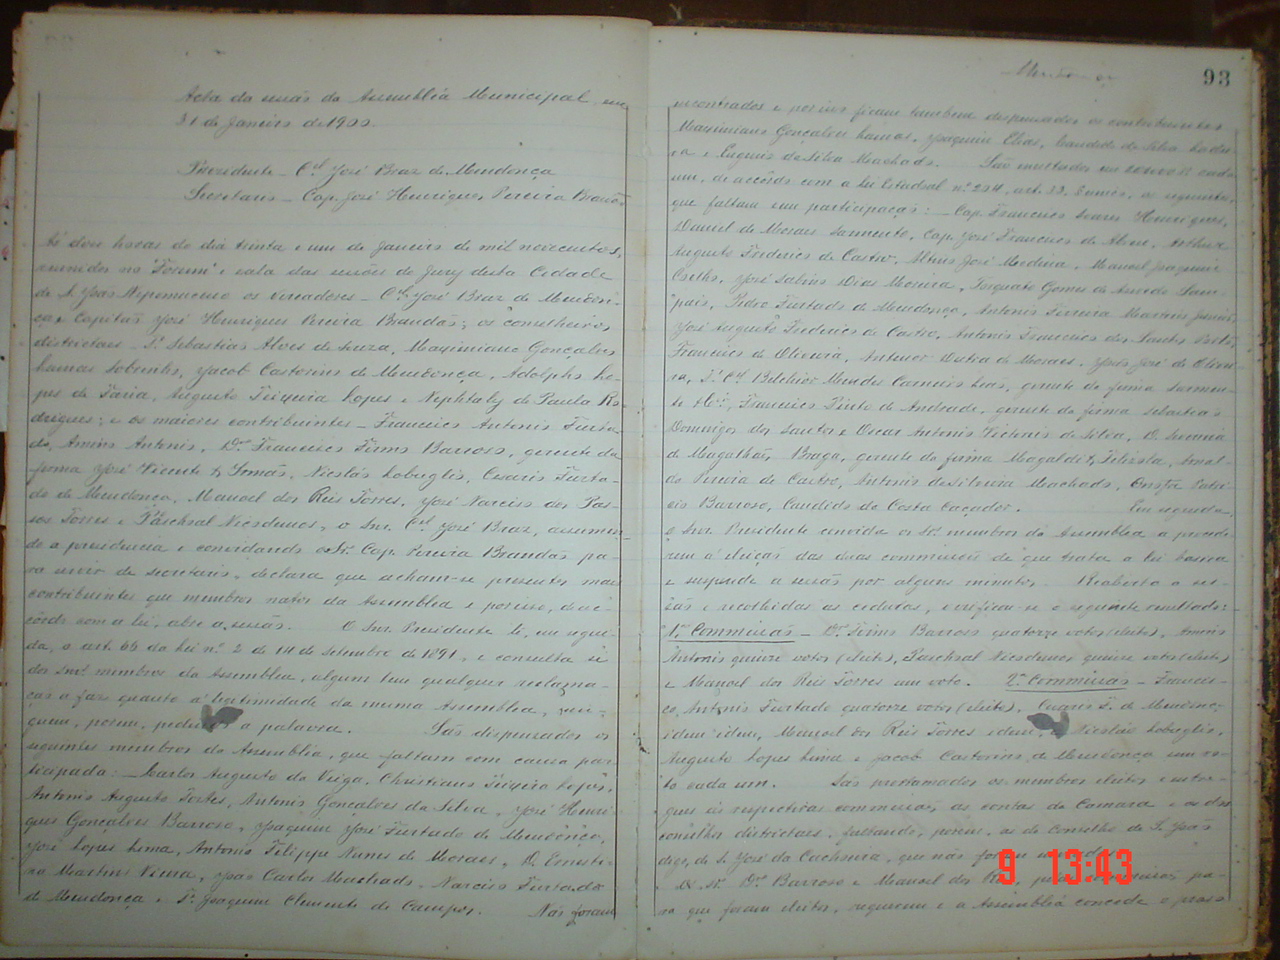 Acta da sessão da Assembléa Municipal, em
31 de Janeiro de 1900.
Presidente - Cel José Braz de Mendonça
Secretario - Cap. José Henriques Pereira Brandão
horas do dia trinta e um de Janeiro de mil novecentos,
reunidos no "Forum" e sala das sessões do Jury desta Cidade
de S. João Nepomuceno os Vereadores - Cel José Braz de Mendon-
ça e Capitão José Henriques Pereira Brandão; os conselheiros
districtaes - Sr Sebastião Alves de Souza, Maximiano Gonçalves
Lamas Sobrinho, Jacob Castorino de Mendonça, Adolpho Lo-
pes de Faria, Augusto Teixeira Lopes e Nephtaly de Paula Ro-
drigues; e os maiores contribuintes - Francisco Antonio Furta-
do, Amins Antonio, Dor Francisco Firmo Barroso, gerente da
firma José Vicente & Irmão, Nicoláo Lobuglio, Cesario Furta-
do de Mendonça, Manoel dos Reis Torres, José Narciso dos Pas-
sos Torres e Paschoal Nicodemos, o Snr. Cel José Braz, assumin-
do a presidencia e convidando o Sr. Cap. Pereira Brandão pa-
ra servir de secretario, declara que acham-se presentes mais
contribuintes que membros natos da Assembléa e porisso, de ac-
côrdo com a lei, abre a sessão. O Snr. Presidente lê, em segui-
da, o art. 66 da lei nº 2 de 14 de Setembro de 1891, e consulta si
dos Snrs membros da Assembléa, algum tem qualquer reclama-
ção a fazer quanto á legitimidade da mesma Assembléa, nin-
guem, porem, pedindo a palavra. São dispensados os
seguintes membros da Assembléa, que faltam com causa par-
ticipada: - Carlos Augusto da Veiga, Christiano Teixeira Lopes,
Antonio Augusto Fortes, Antonio Gonçalves da Silva, José Henri-
ques Gonçalves Barroso, Joaquim José Furtado de Mendonça,
José Lopes Lima, Antonio Filippe Nunes de Moraes, D. Ernesti-
na Martins Vieira, João Carlos Machado, Narciso Furtado
de Mendonça e Sr Joaquim Clemente de Campos. Não foram
93
encontrados e porisso ficam tambem dispensados os contribuintes
Maximiano Gonçalves Lamas, Joaquim Elias, Candido da Silva
e Eugenio da Silva Machado. São multados em cada
um, de accôrdo com a lei Estadoal nº 204, art. 33, os seguintes,
que faltam sem participação: - Cap. Francisco Soares Henriques,
Daniel de Moraes Sarmento, Cap. José Francisco de Abreu, Arthur
Augusto Frederico de Castro, José Medina, Manoel Joaquim
Coelho, José Sabino Dias Moreira, Torquato Gomes de Azevedo Sam-
paio, Pedro Furtado de Mendonça, Antonio Ferreira Martins Junior,
José Augusto Frederico de Castro, Antonio Francisco dos Santos
Francisco de Oliveira, Antenor Dutra de Moraes, João José de Olivei-
ra, Sr Cel Belchior Mendes Carneiro Leão, gerente da firma Sarmen-
to & Cia, Francisco Pinto de Andrade, gerente da firma
Domingos dos Santos e Oscar Antonio da Silva, D.
de Magalhães Braga, gerente da firma Magaldi &
Pereira de Castro, Antonio da Silveira Machado,
Barroso, Candido da Costa Caçador. Em seguida,
o Snr. Presidente convida os Srs membros da Assembléa a procede-
rem á eleição das duas commissões de que trata a lei
e suspende a sessão por alguns minutos. Reaberta a ses-
são e recolhidas as cedulas, verifica-se o seguinte resultado:
1ª Commissão - Dr Firmo Barroso quatorze votos (eleito), Amins
Antonio quinze votos (eleito), Paschoal Nicodemos quinze votos (eleito)
e Manoel dos Reis Torres um voto. 2ª Commissão - Francis-
co Antonio Furtado quatorze votos (eleito), Cesario F. de Mendonça
idem idem, Manoel dos Reis Torres idem, Nicoláo Lobuglio,
Augusto Lopes Lima e Jacob Castorino de Mendonça um vo-
to cada um. São proclamados os membros eleitos e entre-
gues ás respectivas commissões as contas da Camara e as dos
conselhos districtaes, faltando, porem, as do Conselho de S. João
digo, de S. José da Cachoeira, que não
Srs. Dor Barroso e Manoel dos Reis, pa-
ra que foram eleitos, requerem e a Assembléa concede o praso
9 13:43